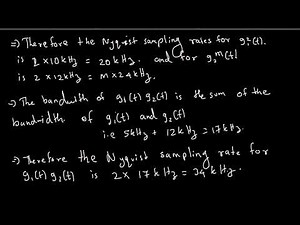 ⇒ Therefore the Nyquist sampling rates for g²(t).
is 2 × 10kHz = 20kHz. and for g₂ᵐ(t)
is 2 × 12kHz = m × 24kHz.
→ The bandwidth of g₁(t) g₂(t) is the sum of the
bandwidth of g₁(t) and g₂(t)
i.e 5kHz + 12kHz = 17kHz.
⇒ Therefore the Nyquist sampling rate for
g₁(t) g₂(t) is 2 × 17kHz = 34kHz.